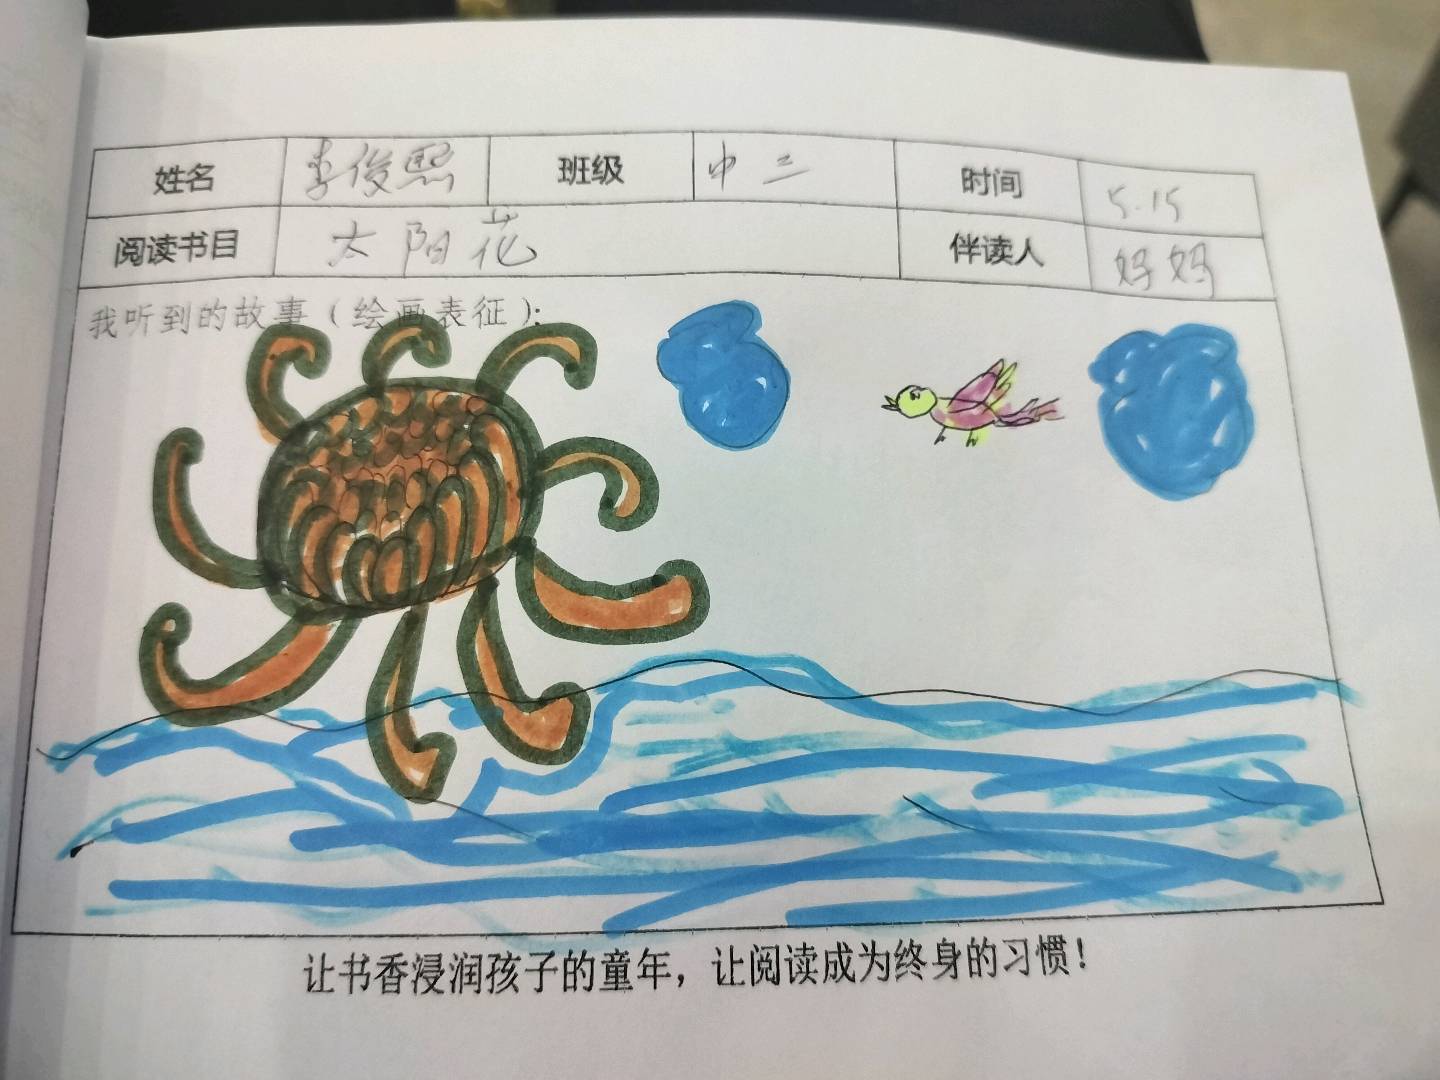 姓名 李俊熙 班级 中三 时间 5.15
阅读书目 太阳花 伴读人 妈妈
我听到的故事（绘画表征）：
让书香浸润孩子的童年，让阅读成为终身的习惯！